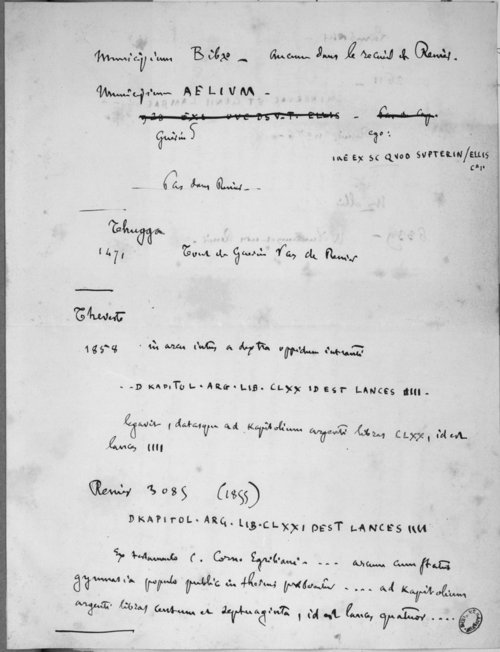 Municipium Bibæ — Aucun dans le recueil de Renier.
Municipium AELIVM —
Guérin
ego:
IAE EX SC QVOD SVPTERIN/ELLIS
Pas dans Renier —
Thugga
1471 Tout de Guérin Pas de Renier
Theveste
1858 in arcu intus a dextra oppidum intranti
D KAPITOL · ARG · LIB · CLXX ID EST LANCES IIII ·
legavit, datasque ad Kapitolium argenti libras CLXX, id est
lances IIII
Renier 3085 (1855)
D KAPITOL · ARG · LIB · CLXX I DEST LANCES IIII
Ex testamento C. Corne Egriliani - ... arcum cum statuis
gymnasia populo public in thermis præbentur .... ad Kapitolium
argenti libras centum et septuaginta, id est lances quatuor ....